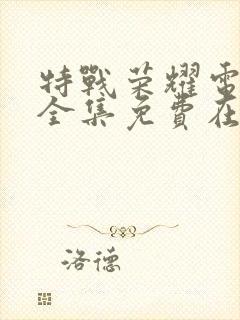 特戰荣耀電
全集免費在
洛德